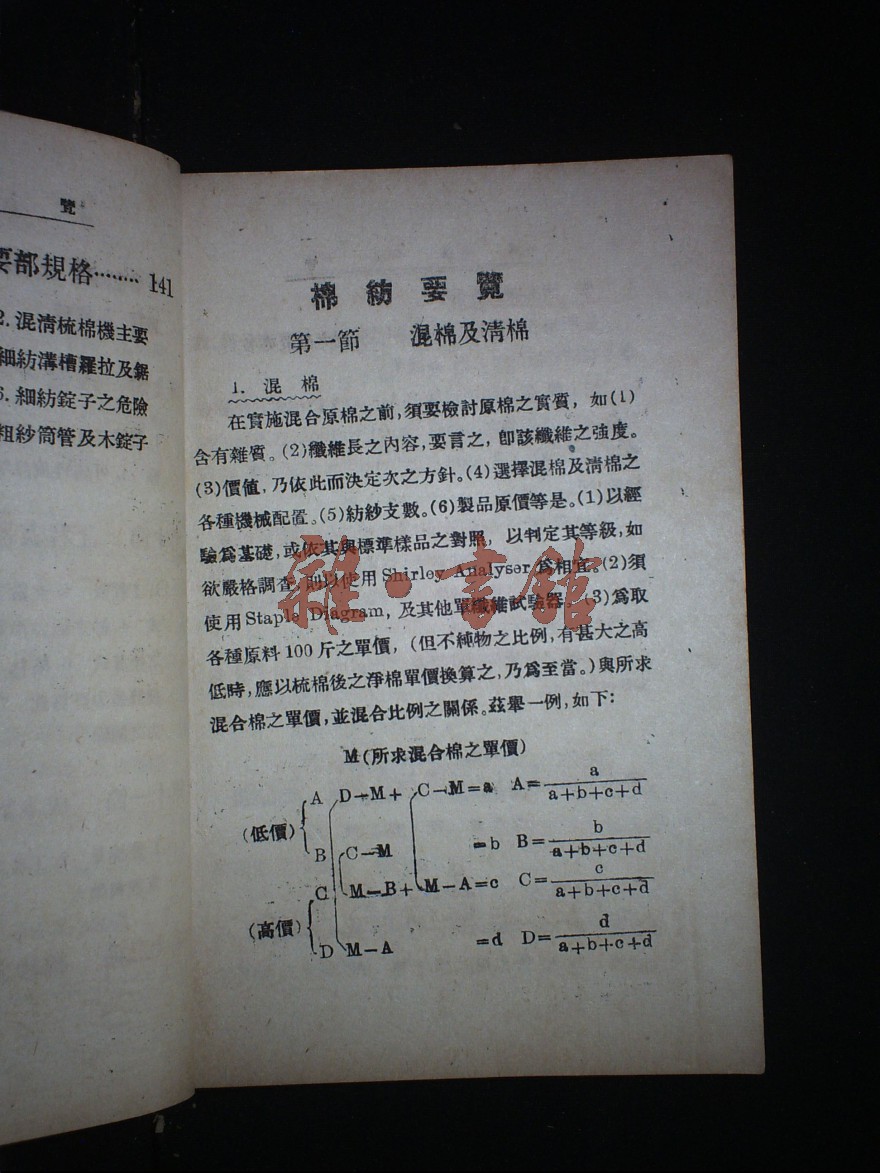 覽
要部規格……… 141
2. 混清梳棉機主要
細紡溝槽羅拉及鋸
6. 細紡錠子之危險
粗紗筒管及木錠子
棉紡要覽
第一節 混棉及清棉
1. 混棉
在實施混合原棉之前,須要檢討原棉之實質,如(1)
含有雜質。(2)纖維長之內容,要言之,卽該纖維之強度。
(3)價値,乃依此而決定次之方針。(4)選擇混棉及清棉之
各種機械配置。(5)紡紗支數。(6)製品原價等是。(1)以經
驗爲基礎,或依其與標準樣品之對照,以判定其等級,如
欲嚴格調查,則以使用Shirley Analyser爲相宜。(2)須
使用Staple Diagram,及其他單纖維試驗器。(3)爲取
各種原料100斤之單價,(但不純物之比例,有甚大之高
低時,應以梳棉後之淨棉單價換算之,乃爲至當。)與所求
混合棉之單價,並混合比例之關係。茲舉一例,如下:
M(所求混合棉之單價)
(低價) A D-M+ C-M=a A=a/(a+b+c+d)
B C-M =b B=b/(a+b+c+d)
(高價) C M-B+M-A=c C=c/(a+b+c+d)
D M-A =d D=d/(a+b+c+d)
雜·書館